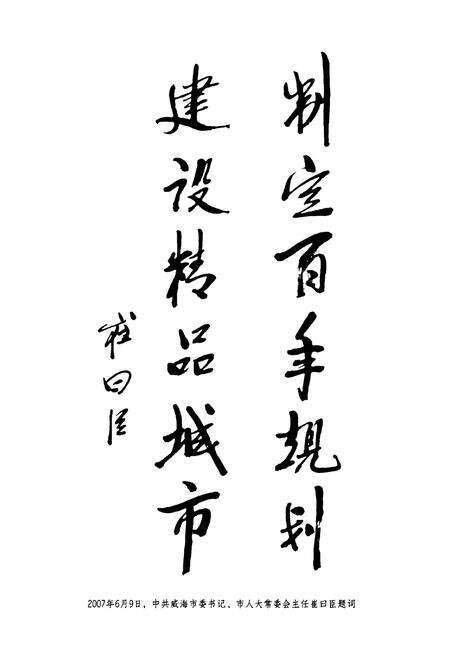 制定百年规划
建设精品城市
崔曰臣
2007年6月9日，中共威海市委书记、市人大常委会主任崔曰臣题词